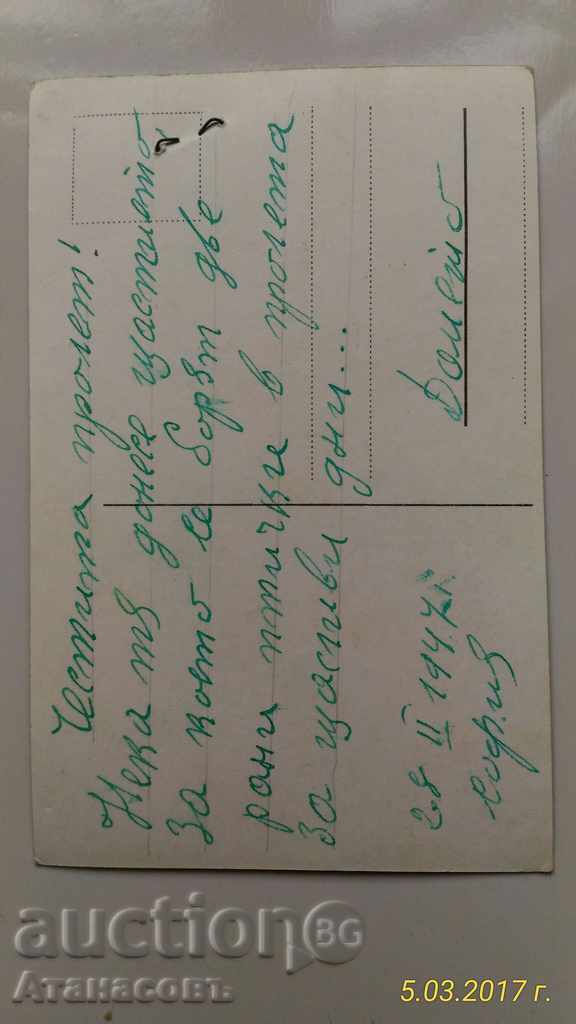 Честита пролет!
Нека тя донесе щастието
за което се борят две
ранни птички в пролетта
за щастливи дни...
28 II 1947 г.
София
auctionBG
Атанасовъ
5.03.2017 г.